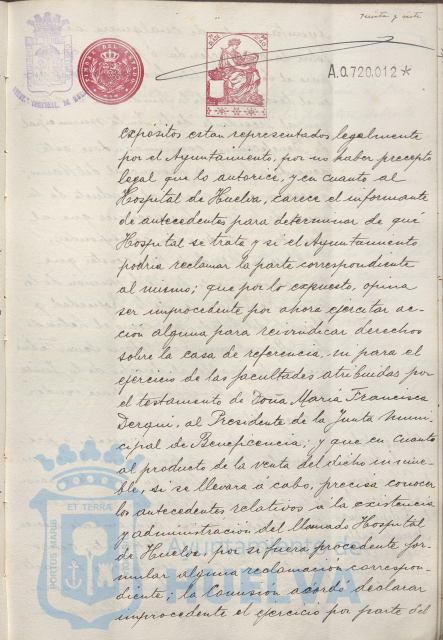 treinta y siete
TIMBRE DEL ESTADO
A.0.720.012*
expositos estan representados legalmente
por el Ayuntamiento, por no haber precepto
legal que lo autorice, y en cuanto al
Hospital de Huelva, carece el informante
de antecedentes para determinar de qué
Hospital se trata y si el Ayuntamiento
podria reclamar la parte correspondiente
al mismo; que por lo expuesto, opina
ser improcedente por ahora ejercitar ac-
ción alguna para reivindicar derechos
sobre la casa de referencia, ni para el
ejercicio de las facultades atribuidas por
el testamento de Doña Maria Francisca
Derqui, al Presidente de la Junta Muni-
cipal de Beneficencia; y que en cuanto
al producto de la venta del dicho inmue-
ble, si se llevara á cabo, precisa conocer
los antecedentes relativos á la existencia
y administracion del llamado Hospital
de Huelva por si fuera procedente for-
mular alguna reclamacion correspon-
diente; la Comision acordó declarar
improcedente el ejercicio por parte del
PORTUS MARIS ET TERRA
Ayuntamiento de
HUELVA